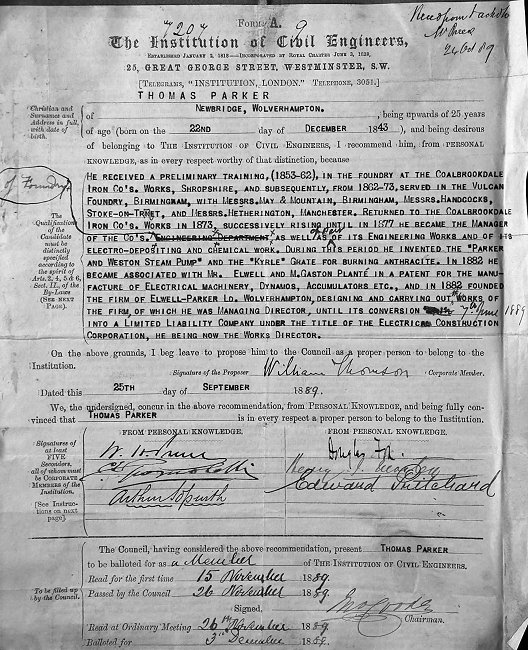 7207
FORM A. 9
The Institution of Civil Engineers,
ESTABLISHED JANUARY 2, 1818—INCORPORATED BY ROYAL CHARTER JUNE 3, 1828,
25, GREAT GEORGE STREET, WESTMINSTER, S.W.
[TELEGRAMS, "INSTITUTION, LONDON." TELEPHONE, 3051.]
24 Oct 89
Christian and
Surnames and
Address in full,
with date of
birth.
THOMAS PARKER
of NEWBRIDGE, WOLVERHAMPTON. , being upwards of 25 years
of age (born on the 22ND day of DECEMBER 1843), and being desirous
of belonging to THE INSTITUTION OF CIVIL ENGINEERS, I recommend him, from PERSONAL
KNOWLEDGE, as in every respect worthy of that distinction, because
of Foundry
The
Qualifications
of the
Candidate
must be
distinctly
specified
according to
the spirit of
Arts. 2, 4, 5, & 6,
Sect. II., of the
By-Laws
(SEE NEXT
PAGE).
HE RECEIVED A PRELIMINARY TRAINING, (1853-62), IN THE FOUNDRY AT THE COALBROOKDALE
IRON CO'S. WORKS, SHROPSHIRE, AND SUBSEQUENTLY, FROM 1862-73, SERVED IN THE VULCAN
FOUNDRY, BIRMINGHAM, WITH MESSRS, MAY & MOUNTAIN, BIRMINGHAM, MESSRS, HANDCOCKS,
STOKE-ON-TRENT, AND MESSRS. HETHERINGTON, MANCHESTER. RETURNED TO THE COALBROOKDALE
IRON CO'S. WORKS IN 1873, SUCCESSIVELY RISING UNTIL IN 1877 HE BECAME THE MANAGER
OF THE CO'S. ENGINEERING DEPARTMENT, AS WELL AS OF ITS ENGINEERING WORKS AND OF ITS
ELECTRO-DEPOSITING AND CHEMICAL WORK. DURING THIS PERIOD HE INVENTED THE "PARKER
AND WESTON STEAM PUMP" AND THE "KYRLE" GRATE FOR BURNING ANTHRACITE. IN 1882 HE
BECAME ASSOCIATED WITH MR. ELWELL AND M. GASTON PLANTÉ IN A PATENT FOR THE MANU-
FACTURE OF ELECTRICAL MACHINERY, DYNAMOS, ACCUMULATORS ETC., AND IN 1882 FOUNDED
THE FIRM OF ELWELL-PARKER LD. WOLVERHAMPTON, DESIGNING AND CARRYING OUT WORKS OF
THE FIRM, OF WHICH HE WAS MANAGING DIRECTOR, UNTIL ITS CONVERSION 7th June 1889
INTO A LIMITED LIABILITY COMPANY UNDER THE TITLE OF THE ELECTRICAL CONSTRUCTION
CORPORATION, HE BEING NOW THE WORKS DIRECTOR.
On the above grounds, I beg leave to propose him to the Council as a proper person to belong to the
Institution.
Signature of the Proposer William Thomson Corporate Member.
Dated this 25TH day of SEPTEMBER 1889.
We, the undersigned, concur in the above recommendation, from PERSONAL KNOWLEDGE, and being fully con-
vinced that THOMAS PARKER is in every respect a proper person to belong to the Institution.
FROM PERSONAL KNOWLEDGE. FROM PERSONAL KNOWLEDGE.
Signatures of
at least
FIVE
Seconders,
all of whom must
be CORPORATE
MEMBERS of the
Institution.
[See Instruc-
tions on next
page]
Edward Pritchard
The Council, having considered the above recommendation, present THOMAS PARKER
to be balloted for as a Member of THE INSTITUTION OF CIVIL ENGINEERS.
To be filled up
by the Council.
Read for the first time 15 November 1889.
Passed by the Council 26 November 1889.
Signed,
Chairman.
Read at Ordinary Meeting 26th November 1889
Balloted for 3rd December 1889.